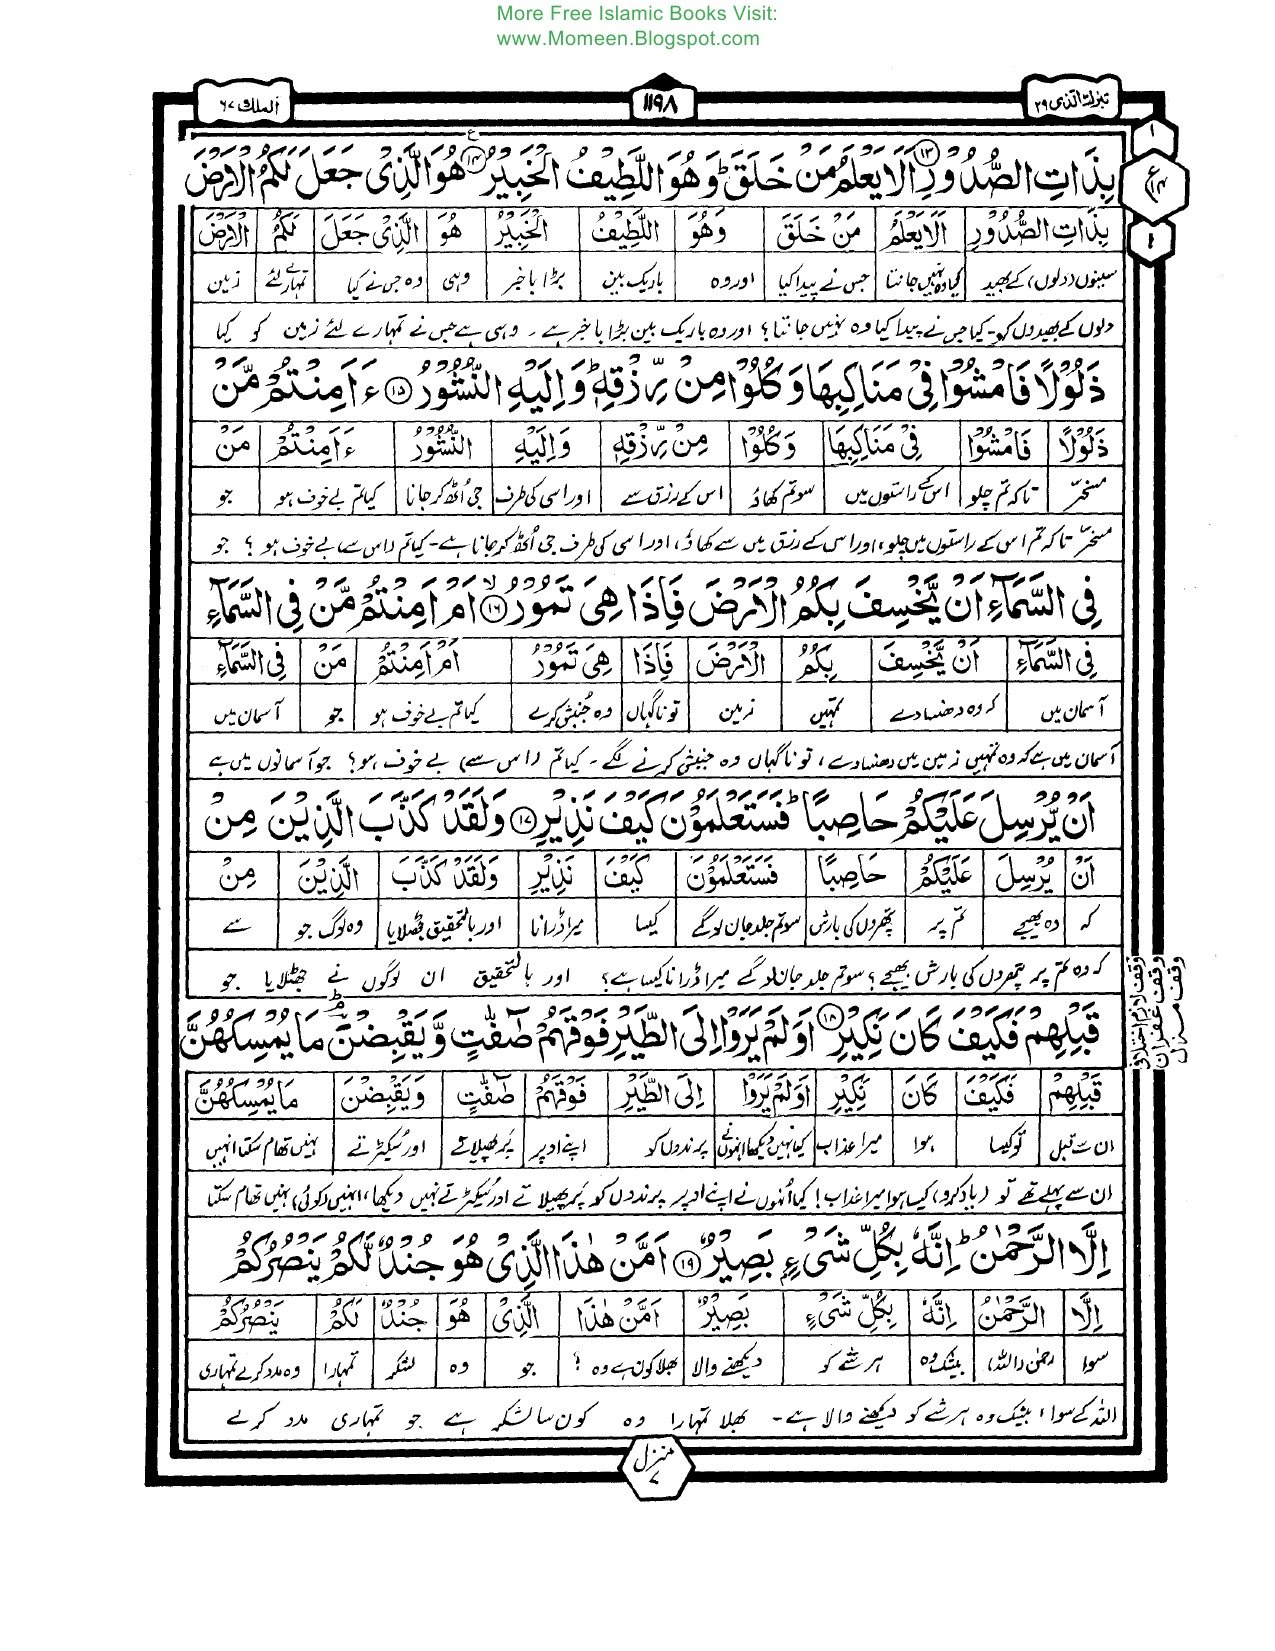 More Free Islamic Books Visit:
www.Momeen.Blogspot.com
تبٰرك الذی ٢٩
١١٩٨
الملك ٦٧
بِذَاتِ الصُّدُوْرِ ١٣ اَلَا یَعْلَمُ مَنْ خَلَقَ ؕ وَهُوَ اللَّطِیْفُ الْخَبِیْرُ ١٤ هُوَ الَّذِیْ جَعَلَ لَكُمُ الْاَرْضَ
بِذَاتِ الصُّدُوْرِ اَلَا یَعْلَمُ مَنْ خَلَقَ وَهُوَ اللَّطِیْفُ الْخَبِیْرُ هُوَ الَّذِیْ جَعَلَ لَكُمُ الْاَرْضَ
سینوں (دلوں) کے بھید کیا وہ نہیں جانتا جس نے پیدا کیا اور وہ باریک بین بڑا باخبر وہی وہ جس نے کیا تمہارے لئے زمین
دلوں کے بھیدوں کو۔ کیا جس نے پیدا کیا وہ نہیں جانتا؟ اور وہ باریک بین بڑا باخبر ہے۔ وہی ہے جس نے تمہارے لئے زمین کو کیا
ذَلُوْلًا فَامْشُوْا فِیْ مَنَاكِبِهَا وَكُلُوْا مِنْ رِّزْقِهٖ ؕ وَاِلَیْهِ النُّشُوْرُ ١٥ ءَاَمِنْتُمْ مَّنْ
ذَلُوْلًا فَامْشُوْا فِیْ مَنَاكِبِهَا وَكُلُوْا مِنْ رِّزْقِهٖ وَاِلَیْهِ النُّشُوْرُ ءَاَمِنْتُمْ مَنْ
مسخر تاکہ تم چلو اس کے راستوں میں سو تم کھاؤ اس کے رزق سے اور اسی کی طرف جی اُٹھ کر جانا کیا تم بے خوف ہو جو
مسخر تاکہ تم اس کے راستوں میں چلو، اور اس کے رزق میں سے کھاؤ، اور اسی کی طرف جی اُٹھ کر جانا ہے۔ کیا تم (اس سے) بے خوف ہو؟ جو
فِی السَّمَآءِ اَنْ یَّخْسِفَ بِكُمُ الْاَرْضَ فَاِذَا هِیَ تَمُوْرُ ۙ ١٦ اَمْ اَمِنْتُمْ مَّنْ فِی السَّمَآءِ
فِی السَّمَآءِ اَنْ یَّخْسِفَ بِكُمُ الْاَرْضَ فَاِذَا هِیَ تَمُوْرُ اَمْ اَمِنْتُمْ مَنْ فِی السَّمَآءِ
آسمان میں کہ وہ دھنسا دے تمہیں زمین تو ناگہاں وہ جُنبش کرے کیا تم بے خوف ہو جو آسمان میں
آسمان میں ہے کہ وہ تمہیں زمین میں دھنسا دے، تو ناگہاں وہ جنبش کرنے لگے۔ کیا تم (اس سے) بے خوف ہو؟ جو آسمانوں میں ہے
اَنْ یُّرْسِلَ عَلَیْكُمْ حَاصِبًا ؕ فَسَتَعْلَمُوْنَ كَیْفَ نَذِیْرِ ١٧ وَلَقَدْ كَذَّبَ الَّذِیْنَ مِنْ
اَنْ یُّرْسِلَ عَلَیْكُمْ حَاصِبًا فَسَتَعْلَمُوْنَ كَیْفَ نَذِیْرِ وَلَقَدْ كَذَّبَ الَّذِیْنَ مِنْ
کہ وہ بھیجے تم پر پتھروں کی بارش سو تم جلد جان لو گے کیسا میرا ڈرانا اور بالتحقیق جھٹلایا وہ لوگ جو سے
کہ وہ تم پر پتھروں کی بارش بھیجے؟ سو تم جلد جان لو گے میرا ڈرانا کیسا ہے؟ اور بالتحقیق ان لوگوں نے جھٹلایا جو
قَبْلِهِمْ فَكَیْفَ كَانَ نَكِیْرِ ١٨ اَوَلَمْ یَرَوْا اِلَی الطَّیْرِ فَوْقَهُمْ صٰٓفّٰتٍ وَّیَقْبِضْنَ مَا یُمْسِكُهُنَّ
قَبْلِهِمْ فَكَیْفَ كَانَ نَكِیْرِ اَوَلَمْ یَرَوْا اِلَی الطَّیْرِ فَوْقَهُمْ صٰٓفّٰتٍ وَّیَقْبِضْنَ مَا یُمْسِكُهُنَّ
ان سے قبل تو کیسا ہوا میرا عذاب کیا نہیں دیکھا انہوں نے پرندوں کو اپنے اوپر پَر پھیلاتے اور سُکیڑتے نہیں تھام سکتا انہیں
ان سے پہلے تھے تو (یاد کرو) کیسا ہوا میرا عذاب! کیا اُنہوں نے اپنے اوپر پرندوں کو پَر پھیلاتے اور سُکیڑتے نہیں دیکھا، انہیں (کوئی) نہیں تھام سکتا
اِلَّا الرَّحْمٰنُ ؕ اِنَّهٗ بِكُلِّ شَیْءٍۭ بَصِیْرٌ ١٩ اَمَّنْ هٰذَا الَّذِیْ هُوَ جُنْدٌ لَّكُمْ یَنْصُرُكُمْ
اِلَّا الرَّحْمٰنُ اِنَّهٗ بِكُلِّ شَیْءٍ بَصِیْرٌ اَمَّنْ هٰذَا الَّذِیْ هُوَ جُنْدٌ لَكُمْ یَنْصُرُكُمْ
سوا رحمن (اللہ) بیشک وہ ہر شے کو دیکھنے والا بھلا کون ہے وہ؟ جو وہ لشکر تمہارا وہ مدد کرے تمہاری
اللہ کے سوا، بیشک وہ ہر شے کو دیکھنے والا ہے۔ بھلا تمہارا وہ کون سا لشکر ہے جو تمہاری مدد کرے
منزل ٧
وقف لازم
وقف غفران
وقف منزل